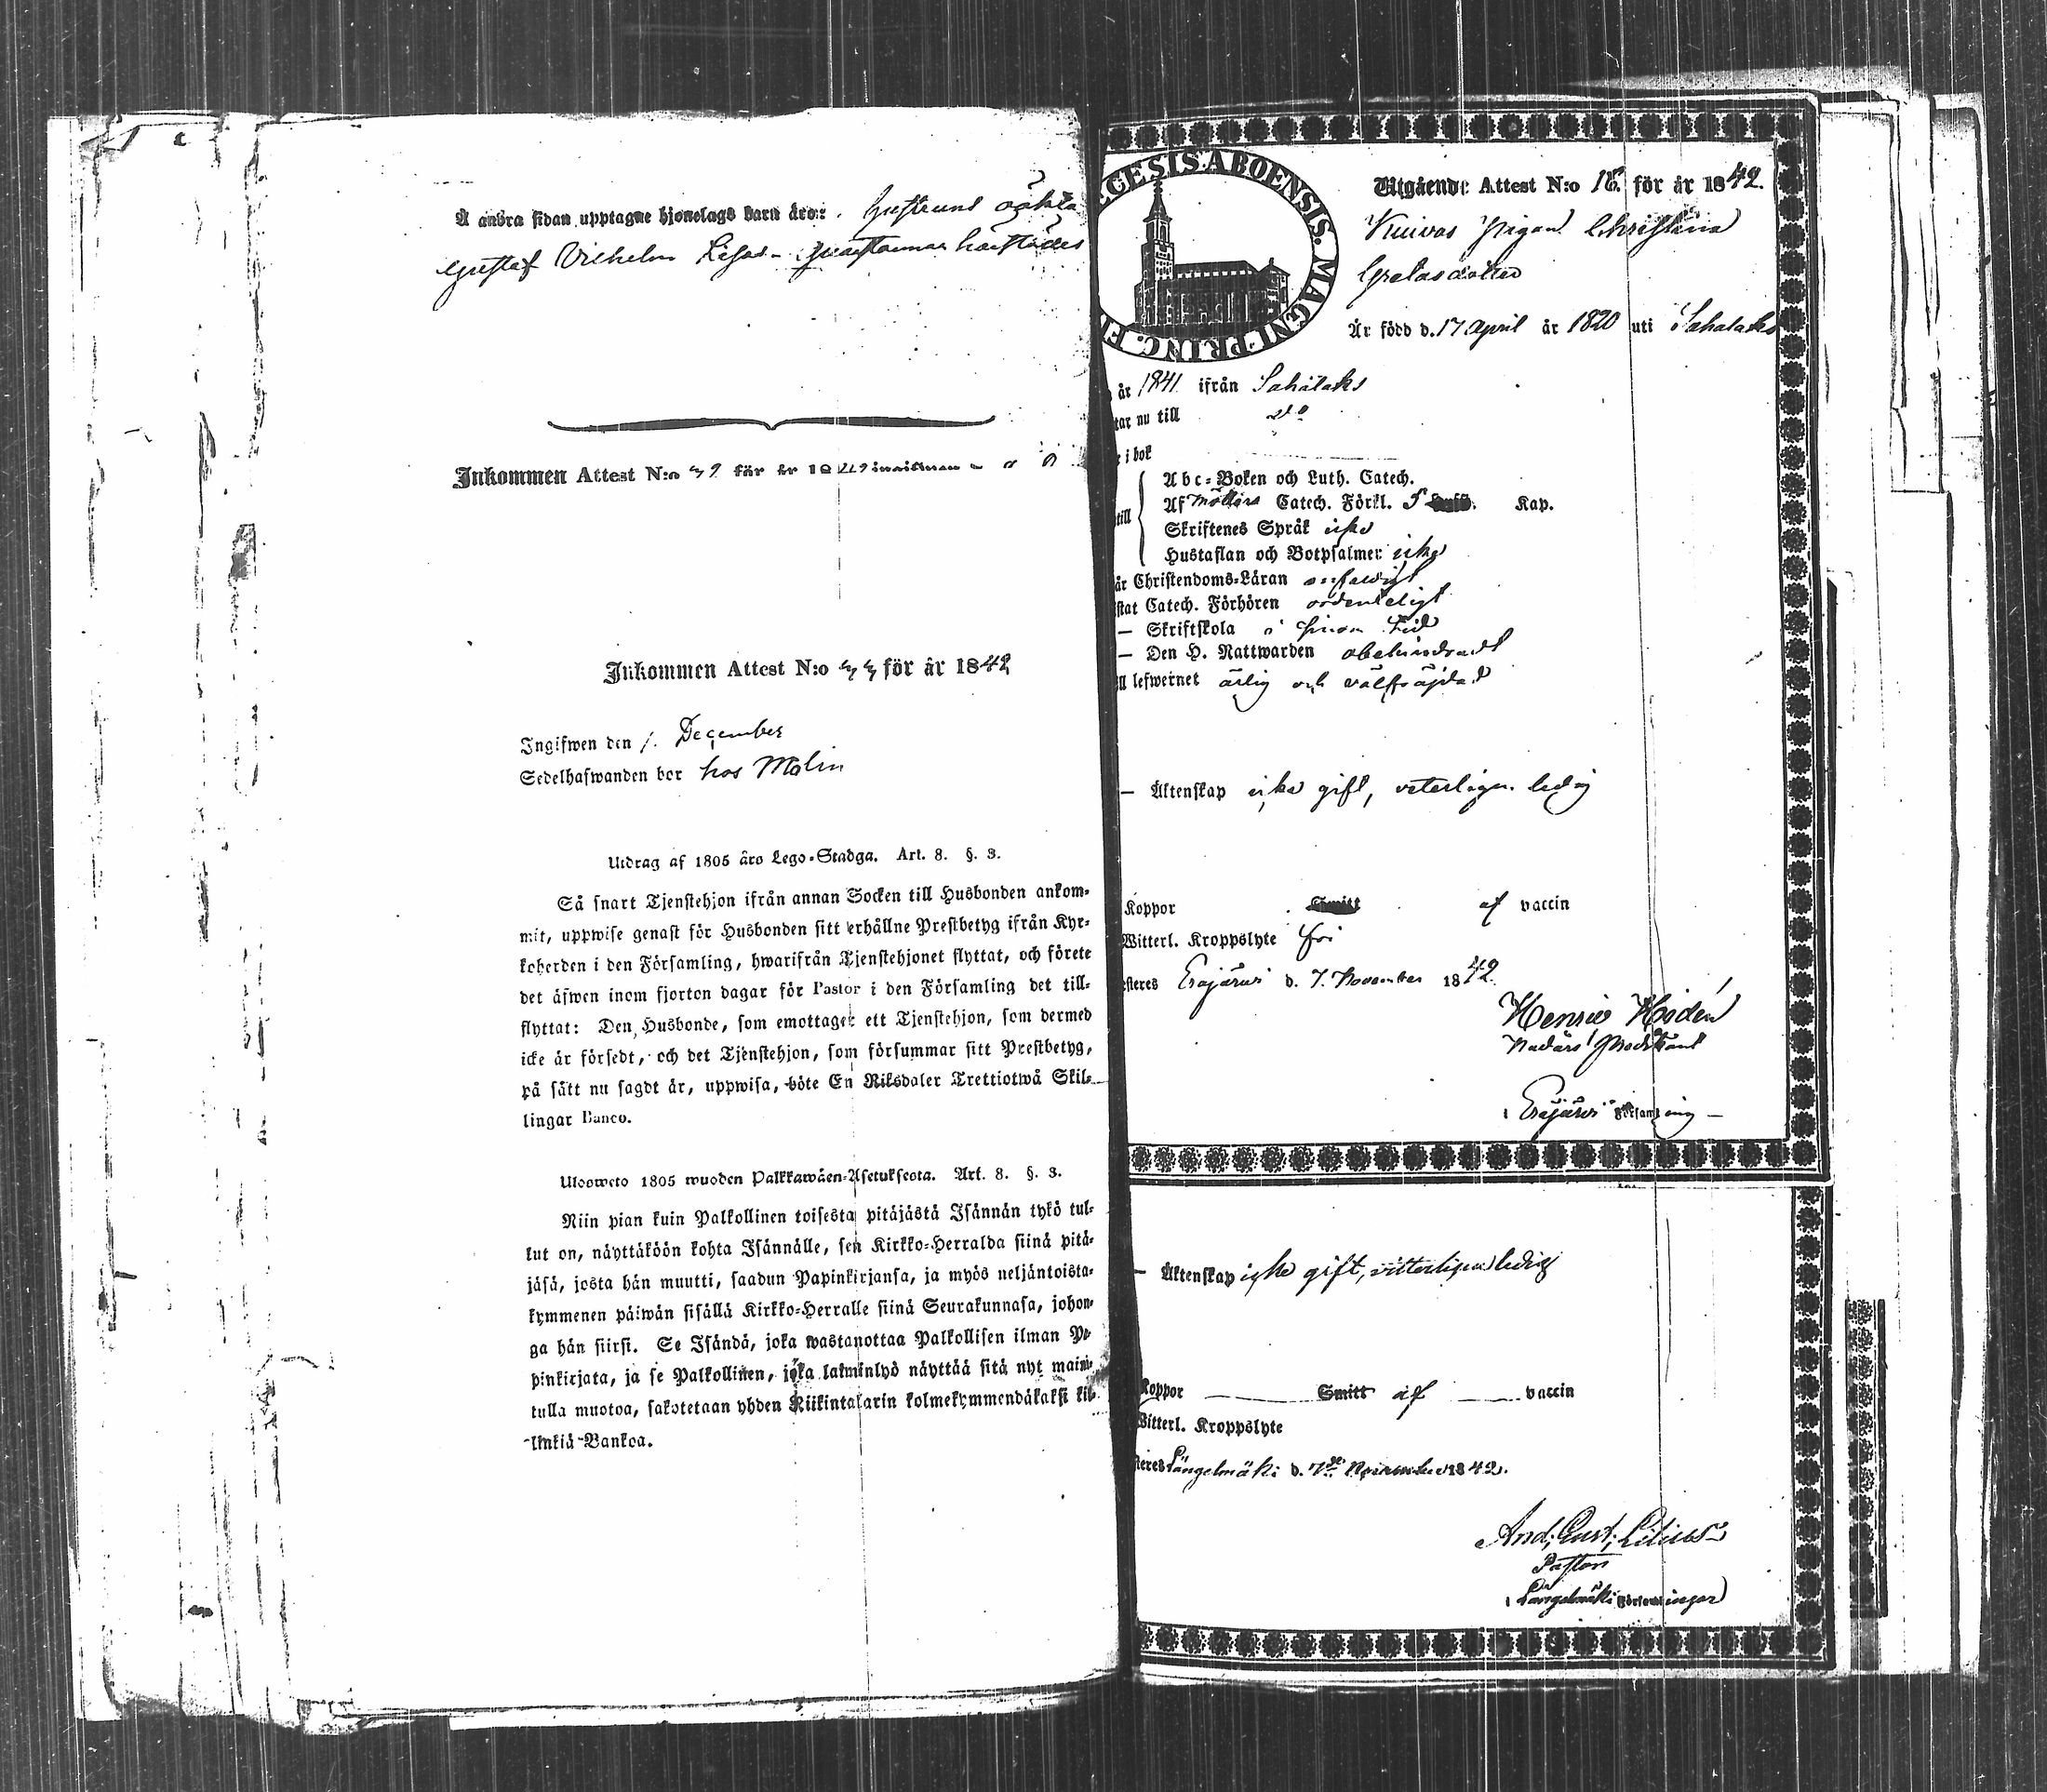 Å andra sidan upptagne hjonelags barn äro: Hustruns oäkta
Gustaf Vilhelm
Inkommen Attest N:o för år 18
Inkommen Attest N:o 44 för år 1842
Ingifwen den 1. December
Sedelhafwanden bor hos Molin
Utdrag af 1805 års Lego-Stadga. Art. 8. §. 3.
Så snart Tjenstehjon ifrån annan Socken till Husbonden ankom-
mit, uppwise genast för Husbonden sitt erhållne Prestbetyg ifrån Kyr-
koherden i den Församling, hwarifrån Tjenstehjonet flyttat, och förete
det äfwen inom fjorton dagar för Pastor i den Församling det till-
flyttat: Den Husbonde, som emottager ett Tjenstehjon, som dermed
icke är försedt, och det Tjenstehjon, som försummar sitt Prestbetyg,
på sätt nu sagdt är, uppwisa, böte En Riksdaler Trettiotwå Skil-
lingar Banco.
Ulosweto 1805 wuoden Palkkawäen-Asetuksesta. Art. 8. §. 3.
Niin pian kuin Palkollinen toisesta pitäjästä Isännän tykö tul-
lut on, näyttäköön kohta Isännälle, sen Kirkko-Herralda siinä pitä-
jäsä, josta hän muutti, saadun Papinkirjansa, ja myös neljäntoista-
kymmenen päiwän sisällä Kirkko-Herralle siinä Seurakunnasa, johon-
ga hän siirsi. Se Isändä, joka wastanottaa Palkollisen ilman Pa-
pinkirjata, ja se Palkollinen, joka laiminlyö näyttää sitä nyt maini-
tulla muotoa, sakotetaan yhden Riikintalarin kolmekymmendäkaksi kil-
linkiä Bankoa.
CESIS ABOENSIS. MAGNI PRINC. F
Utgående Attest N:o 18 för år 1842.
Kuivas Pigan Christina
Gretasdotter
Är född d. 17 April år 1820 uti Sahalaks
år 1841 ifrån Sahalaks
tar nu till do
i bok
till
Abc-Boken och Luth. Catech.
Af Möllers Catech. Förkl. 5 Kap.
Skriftenes Språk icke
Hustaflan och Botpsalmer icke
år Christendoms-Läran enfaldigt
stat Catech. Förhören ordenteligt
— Skriftskola i sinom tid
— Den H. Nattwarden obehindradt
ll lefwernet ärlig och välfrejdad
— Äktenskap icke gift, veterligen ledig
Koppor Smitt af vaccin
Witterl. Kroppslyte fri
esteres Eräjärvi d. 7. November 1842.
Henric Hodén
i Eräjärvi Församling —
— Äktenskap icke gift, vitterligen ledig
Koppor Smitt af vaccin
Witterl. Kroppslyte
steres Längelmäki d. 7de November 1842.
And; Gust; Lilius
Pastor
i Längelmäki Församlingar